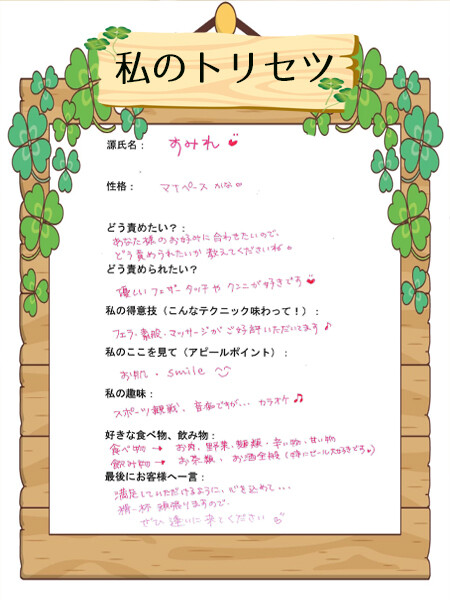 私のトリセツ
源氏名： すみれ
性格： マイペース かな
どう責めたい？：
あなた様のお好みに合わせたいので、
どう責められたいか 教えてくださいね。
どう責められたい？
優しいフェザータッチや クンニが好きです
私の得意技（こんなテクニック味わって！）：
フェラ・素股・マッサージが ご好評いただいてます♪
私のここを見て（アピールポイント）：
お肌・smile
私の趣味：
スポーツ観戦、音痴ですが... カラオケ♫
好きな食べ物、飲み物：
食べ物 → お肉・野菜・麺類・辛い物・甘い物
飲み物 → お茶類、お酒全般（特にビール大好きです♥）
最後にお客様へ一言：
満足していただけるように、心を込めて...
精一杯 頑張りますので、
ぜひ 逢いに来てください